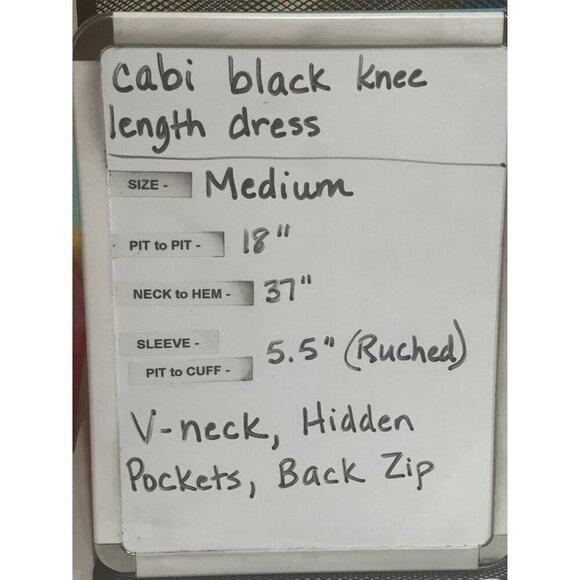 cabi black knee
length dress
SIZE - Medium
PIT to PIT - 18"
NECK to HEM - 37"
SLEEVE -
PIT to CUFF - 5.5" (Ruched)
V-neck, Hidden
Pockets, Back Zip